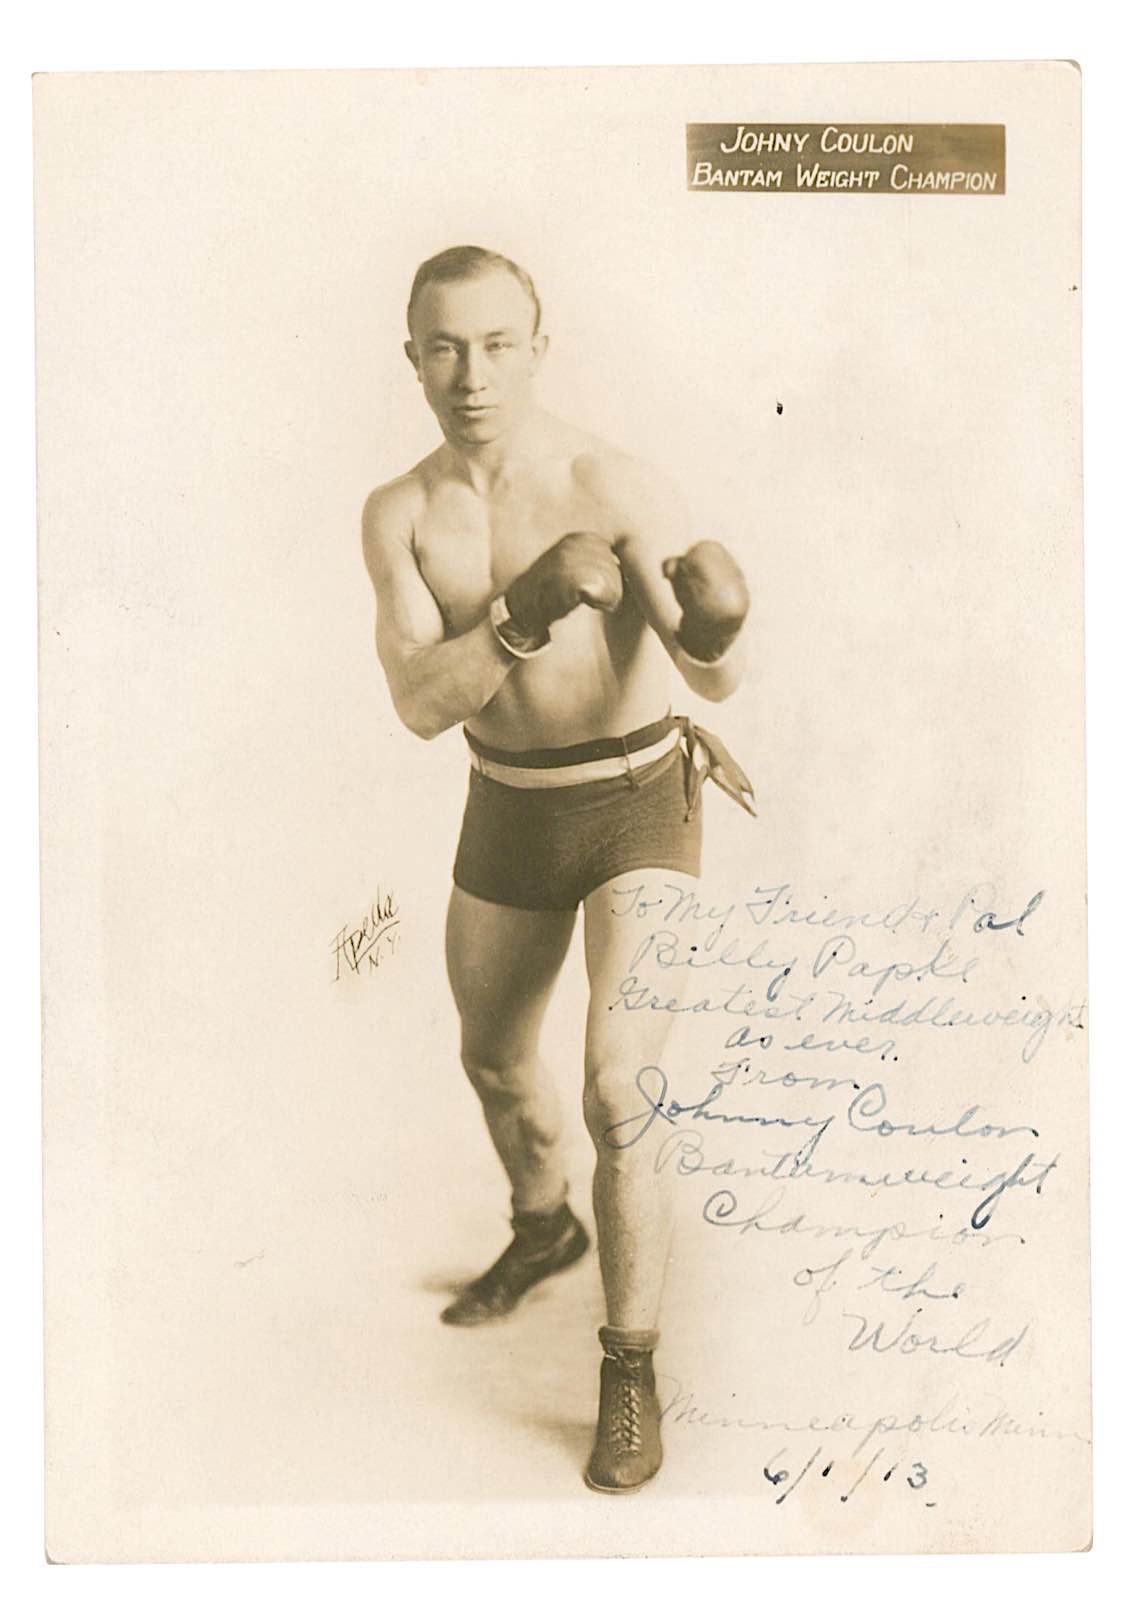 JOHNY COULON
BANTAM WEIGHT CHAMPION
Apeda
N.Y.
To My Friend & Pal
Billy Papke
Greatest Middleweight
as ever.
From
Johnny Coulon
Bantamweight
Champion
of the
World
Minneapolis Minn.
6/1/13.